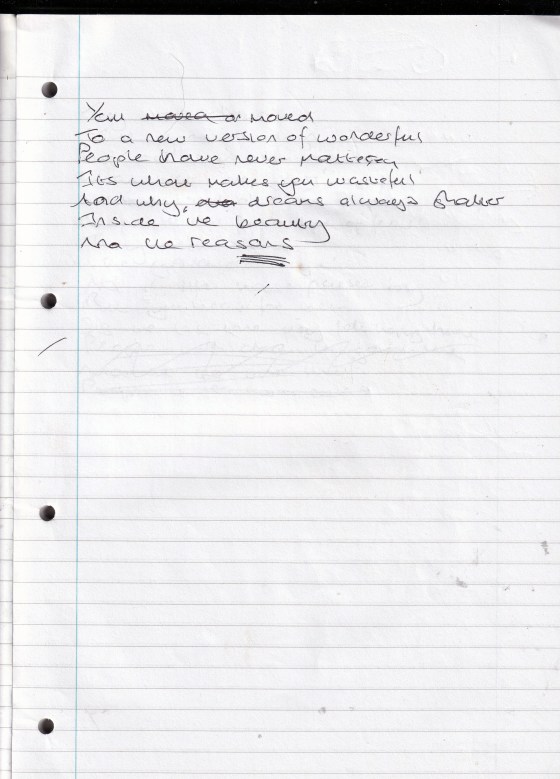 You moved or moved
To a new version of wonderful
People have never
Its what makes you wasteful
And why, dreams always shatter
Inside the beauty
the reasons